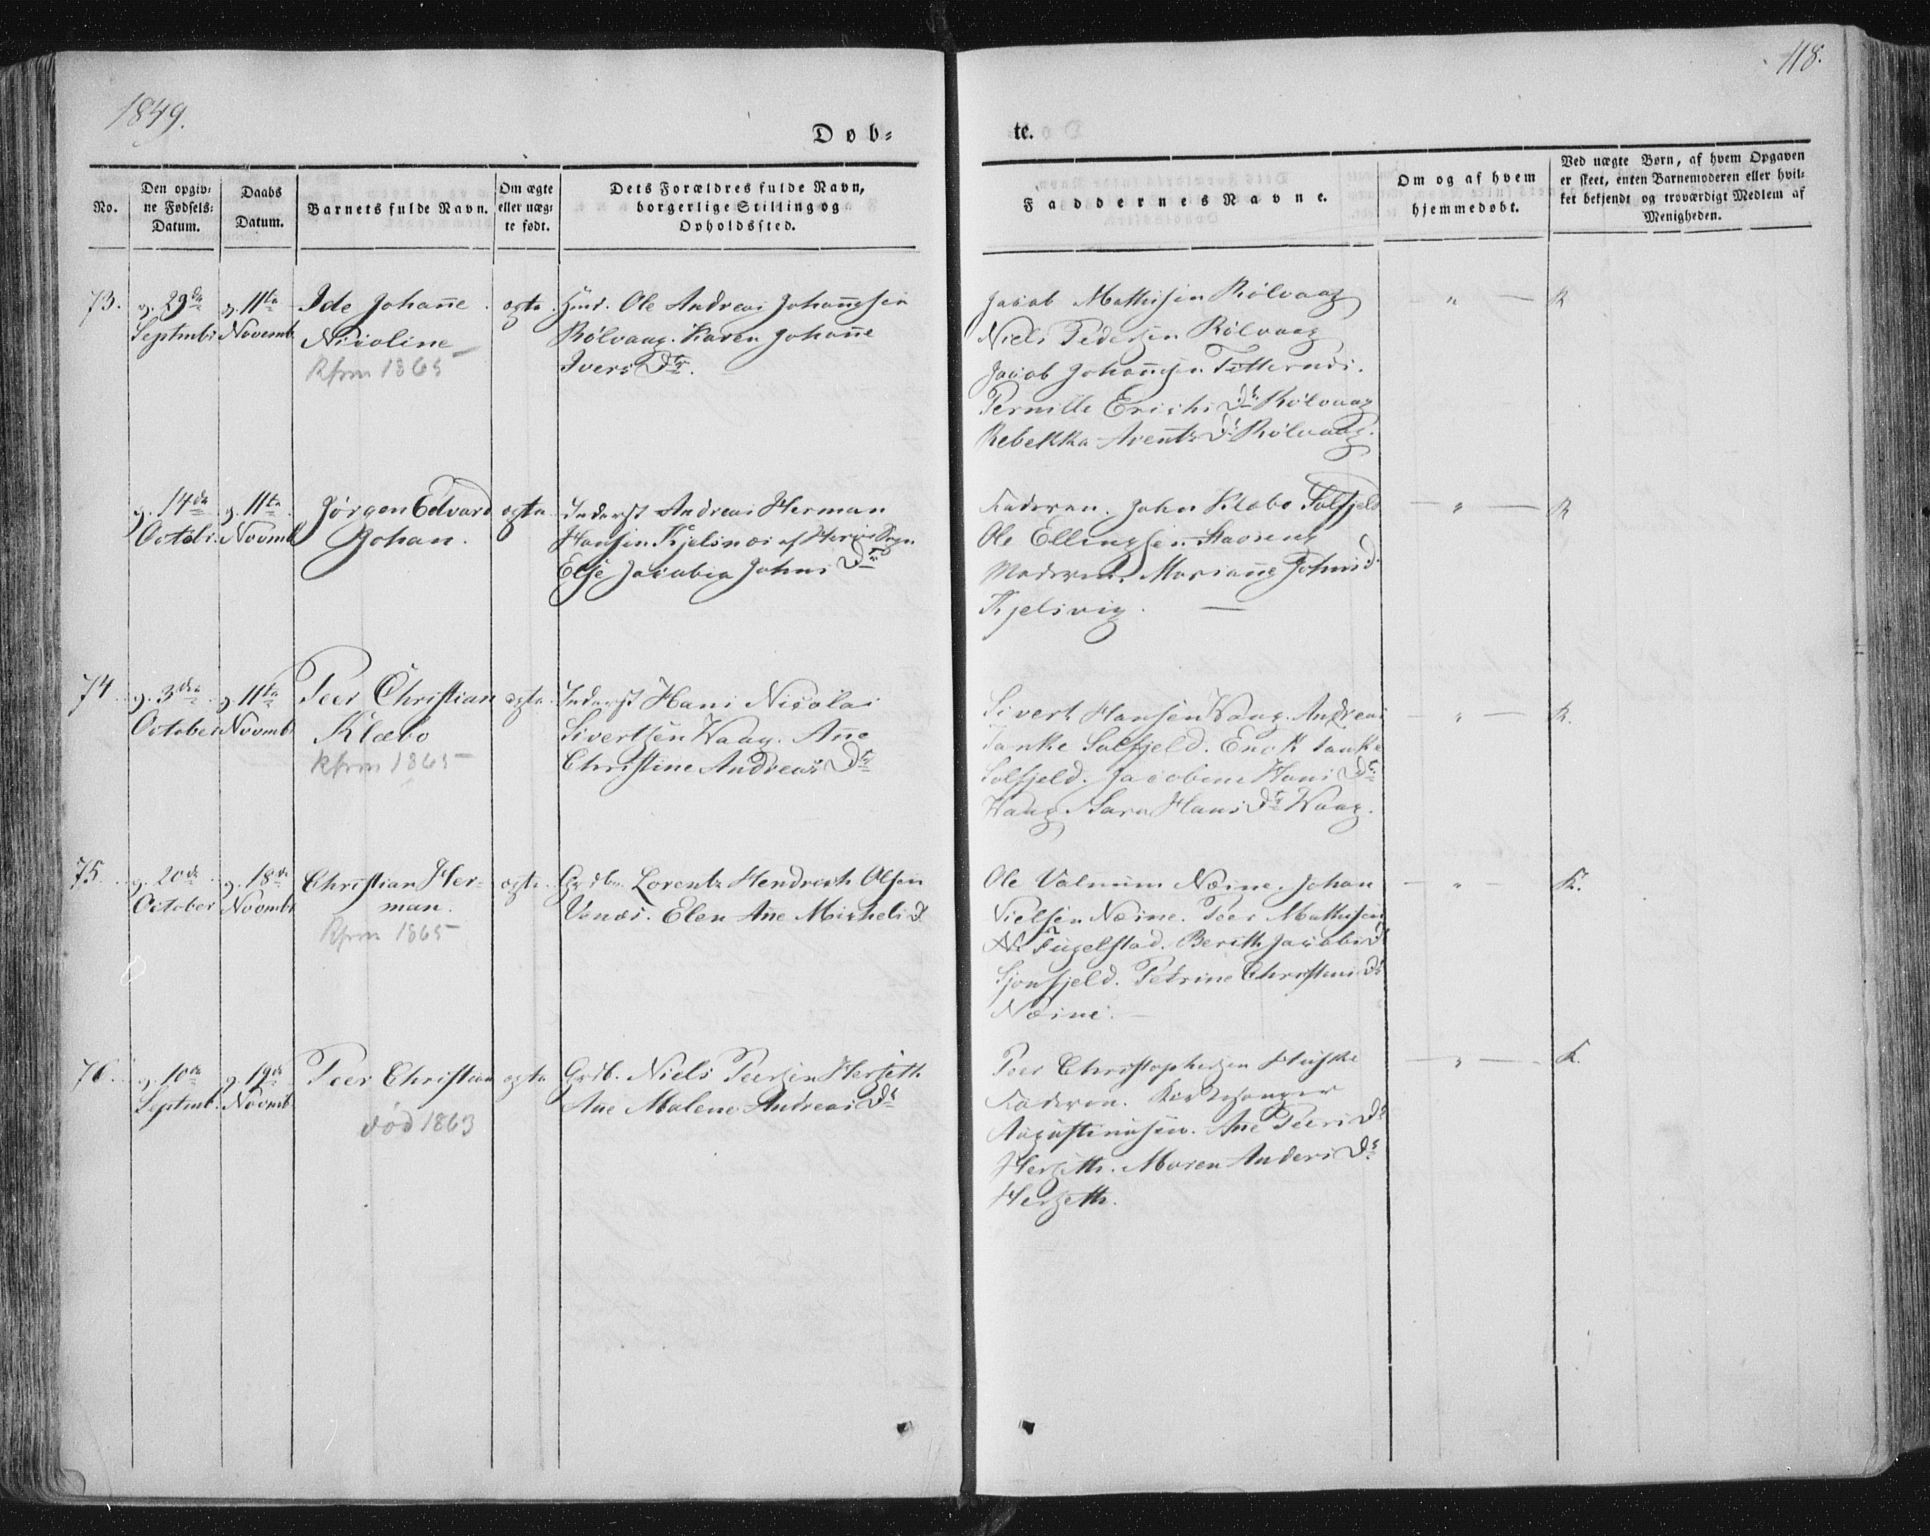 1849.
118.
Døb-
te.
No.
Den opgiv-
ne Fødsels-
Datum.
Daabs
Datum.
Barnets fulde Navn.
Om ægte
eller uæg-
te født.
Dets Forældres fulde Navn,
borgerlige Stilling og
Opholdssted.
Faddernes Navne.
Om og af hvem
hjemmedøbt.
Ved uægte Børn, af hvem Opgaven
er skeet, enten Barnemoderen eller hvil-
ket bekjendt og troværdigt Medlem af
Menigheden.
73.
29de
Septmbr
11te
Novemb
Ide Johanne
Nicoline
Kfrm 1865
ægte
Ole Andreas Johannesen
Rølvaag. Karen Johanne
Ivers Dr.
Jacob Mathisen Rølvaag
Niels Pedersen Rølvaag
Jacob Johannesen
Pernille Erichs Dr Rølvaag
Rebekka Arents Dr Rølvaag.
"
K
14de
Octobr.
11te
Novmb
Jørgen Edvard
Johan.
ægte
Inderst Andreas Herman
Hansen Kjelsnes af Herø Sogn
Else Jacobia Johns Dr
Faderen. John Klæbo Solfjeld
Ole Ellingsen
Moderen. Marianne Johns d.
Kjelsvig.
"
K
74
3die
October
11te
Novmb
Peer Christian
Klæbo
Kfrm 1865
ægte
Inderst Hans Nicolai
Sivertsen Waag. Ane
Christine Andreas Dr
Sivert Hansen Waag. Andreas
Tanke Solfjeld. Enok Tanke
Solfjeld. Jacobine Hans Dr
Waag. Sara Hans Dr Waag.
"
K.
75
20de
October
18de
Novmb
Christian Her-
man.
Kfrm 1865
ægte
Lorents Hendrich Olsen
Venæs. Elen Ane Michels D
Ole Valnum Næsne. Johan
Nielsen Næsne. Peer Mathisen
Fugelstad. Berith Jacobs Dr
Sjonfjeld. Petrine Christens Dr
Næsne.
"
K.
76.
10de
Septmb.
19de
Novmb
Peer Christian
død 1863
ægte
Grdb. Niels Peersen Herseth
Ane Malene Andreas Dr
Peer Christophersen Husbye
Faderen. Kirkesanger
Augustinusen. Ane Peers Dr
Herseth. Maren Anders Dr
Herseth.
"
K.